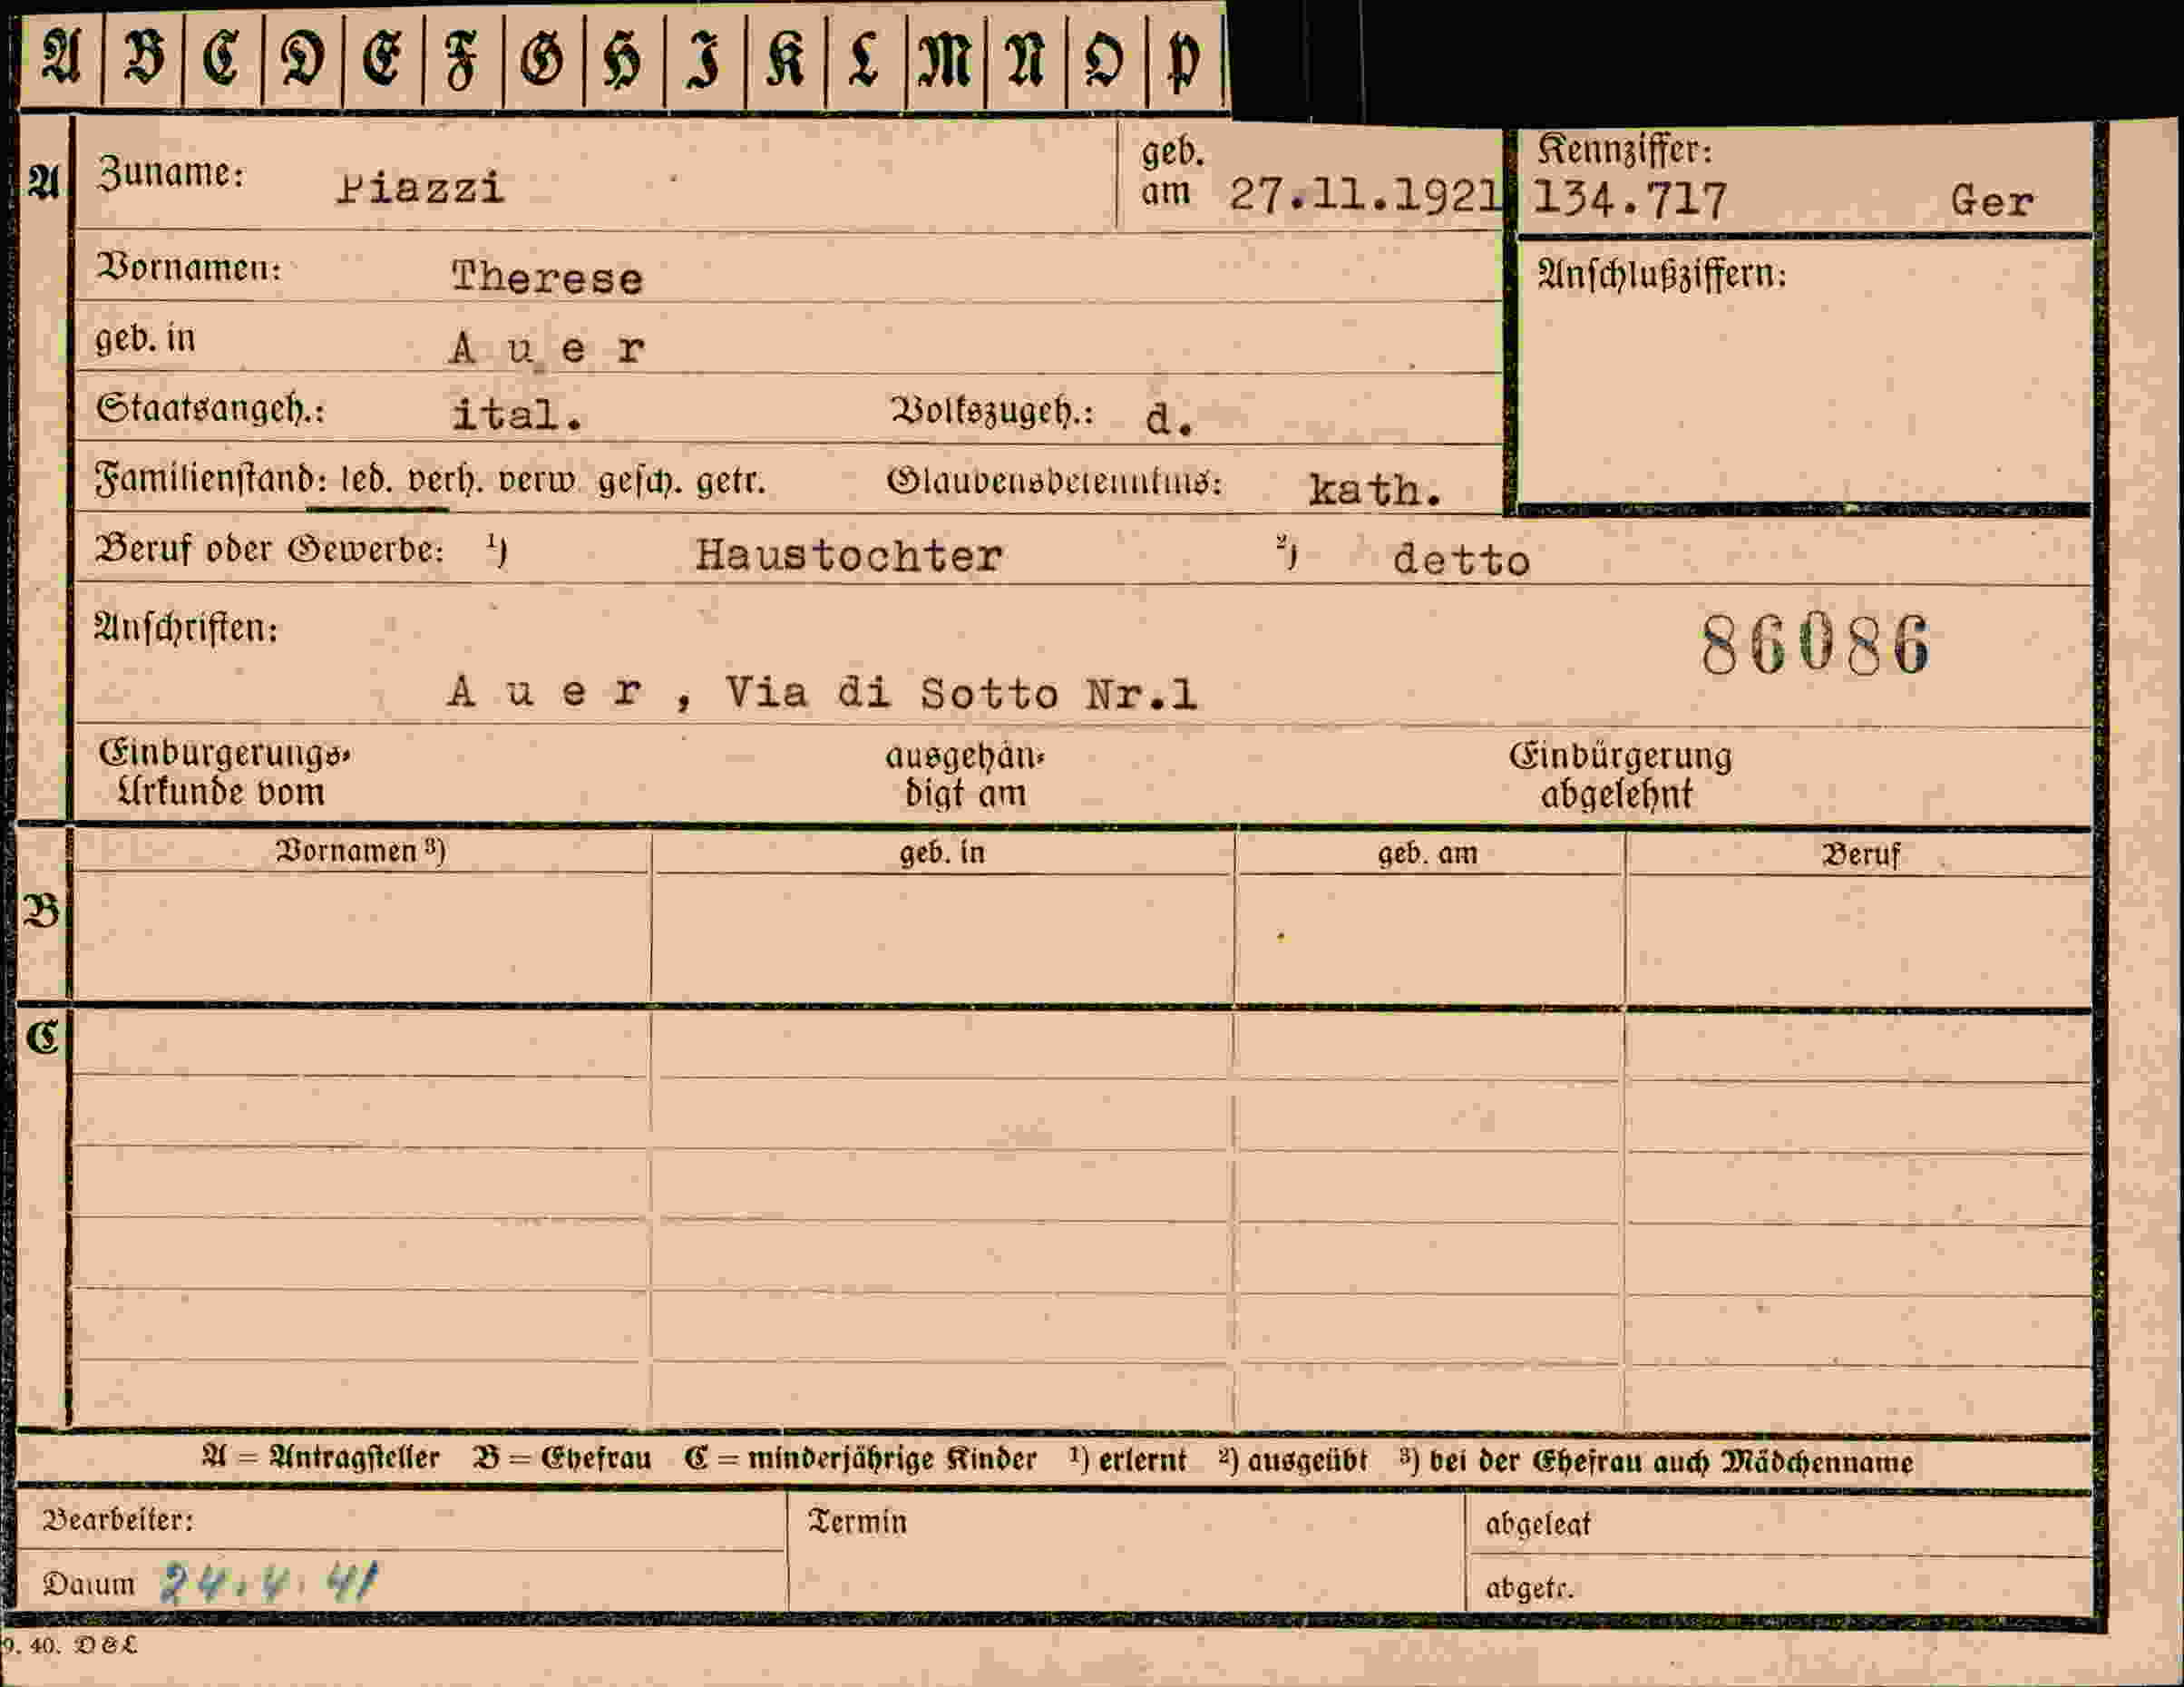 A B C D E F G H I K L M N O P
A Zuname: Piazzi geb. am 27.11.1921 Kennziffer: 134.717 Ger
Vornamen: Therese Anschlußziffern:
geb. in A u e r
Staatsangeh.: ital. Volkszugeh.: d.
Familienstand: led. verh. verw. gesch. getr. Glaubensbekenntnis: kath.
Beruf oder Gewerbe: ¹) Haustochter ²) detto
Anschriften: 86086
A u e r , Via di Sotto Nr.1
Einbürgerungs- ausgehän- Einbürgerung
Urkunde vom digt am abgelehnt
Vornamen ³) geb. in geb. am Beruf
B
C
A = Antragsteller B = Ehefrau C = minderjährige Kinder ¹) erlernt ²) ausgeübt ³) bei der Ehefrau auch Mädchenname
Bearbeiter: Termin abgelegt
Datum 24.4.41 abgetr.
9. 40. D&L